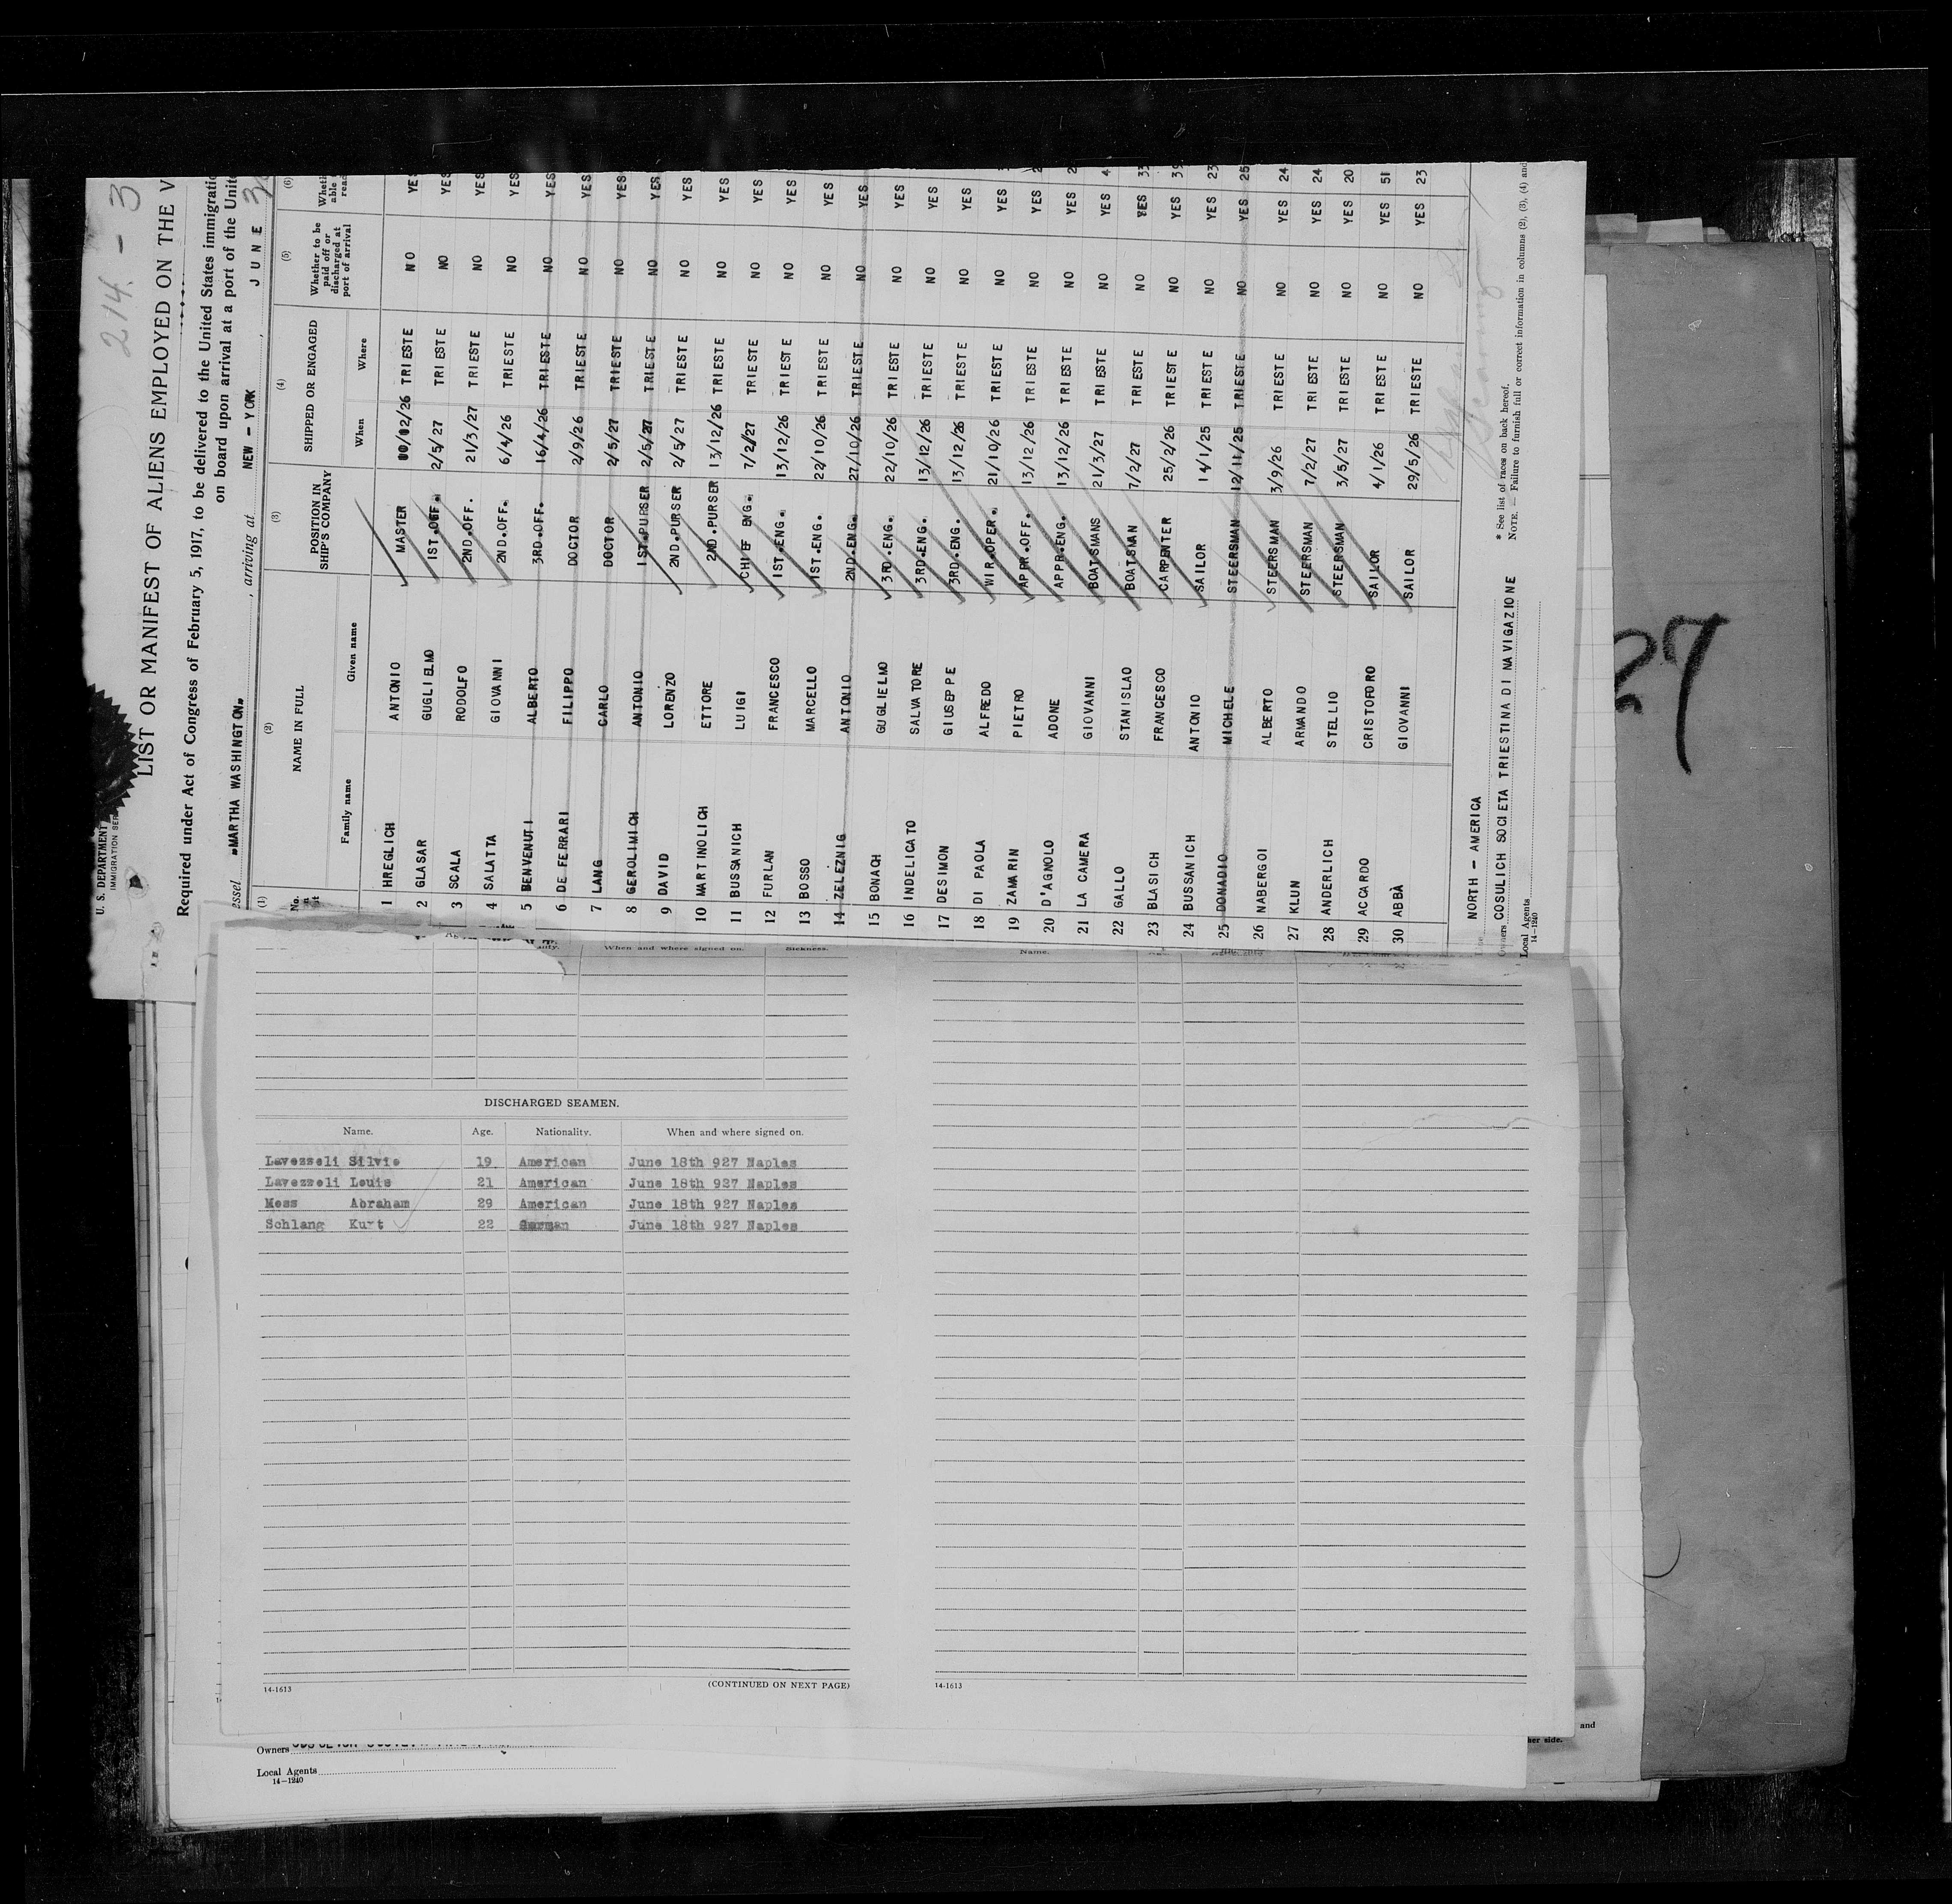 214 - 3
U. S. DEPARTMENT
IMMIGRATION SER
LIST OR MANIFEST OF ALIENS EMPLOYED ON THE V
Required under Act of Congress of February 5, 1917, to be delivered to the United States immigratio
on board upon arrival at a port of the Unite
essel "MARTHA WASHINGTON" , arriving at NEW - YORK , JUNE 30
(1) (2) (3) (4) (5) (6)
No. NAME IN FULL POSITION IN SHIP'S COMPANY SHIPPED OR ENGAGED Whether to be paid off or discharged at port of arrival
Family name Given name When Where
1 HREGLICH ANTONIO MASTER TRIESTE NO YES
2 GLASAR GUGLIELMO 1ST.OFF. 2/5/27 TRIESTE NO YES
3 SCALA RODOLFO 2ND.OFF. 21/3/27 TRIESTE NO YES
4 SALATTA GIOVANNI 2ND.OFF. 6/4/26 TRIESTE NO YES
5 BENVENUTI ALBERTO 3RD.OFF. 16/4/26 TRIESTE NO YES
6 DE FERRARI FILIPPO DOCTOR 2/9/26 TRIESTE NO YES
7 LANG CARLO DOCTOR 2/5/27 TRIESTE NO YES
8 GEROLIMICH ANTONIO 1ST.PURSER 2/5/27 TRIESTE NO YES
9 DAVID LORENZO 2ND.PURSER 2/5/27 TRIESTE NO YES
10 MARTINOLICH ETTORE 2ND.PURSER 13/12/26 TRIESTE NO YES
11 BUSSANICH LUIGI CHIEF ENG. 7/2/27 TRIESTE NO YES
12 FURLAN FRANCESCO 1ST.ENG. 13/12/26 TRIESTE NO YES
13 BOSSO MARCELLO 1ST.ENG. 22/10/26 TRIESTE NO YES
14 ZELEZNIG ANTONIO 2ND.ENG. 27/10/26 TRIESTE NO YES
15 BONACH GUGLIELMO 3RD.ENG. 22/10/26 TRIESTE NO YES
16 INDELICATO SALVATORE 3RD.ENG. 13/12/26 TRIESTE NO YES
17 DESIMON GIUSEPPE 3RD.ENG. 13/12/26 TRIESTE NO YES
18 DI PAOLA ALFREDO WIR.OPER. 21/10/26 TRIESTE NO YES
19 ZAMARIN PIETRO APPR.OFF. 13/12/26 TRIESTE NO YES 2
20 D'AGNOLO ADONE APPR.ENG. 13/12/26 TRIESTE NO YES 2
21 LA CAMERA GIOVANNI BOATSMANS 21/3/27 TRIESTE NO YES 4
22 GALLO STANISLAO BOATSMAN 7/2/27 TRIESTE NO YES 33
23 BLASICH FRANCESCO CARPENTER 25/2/26 TRIESTE NO YES 39
24 BUSSANICH ANTONIO SAILOR 14/1/25 TRIESTE NO YES 23
25 DONADIO MICHELE STEERSMAN 12/11/25 TRIESTE NO YES 25
26 NABERGOI ALBERTO STEERSMAN 3/9/26 TRIESTE NO YES 24
27 KLUN ARMANDO STEERSMAN 7/2/27 TRIESTE NO YES 24
28 ANDERLICH STELLIO STEERSMAN 3/5/27 TRIESTE NO YES 20
29 ACCARDO CRISTOFORO SAILOR 4/1/26 TRIESTE NO YES 51
30 ABBÀ GIOVANNI SAILOR 29/5/26 TRIESTE NO YES 23
NORTH - AMERICA
Owners COSULICH SOCIETA TRIESTINA DI NAVIGAZIONE
Local Agents
14-1240
* See list of races on back hereof.
NOTE. — Failure to furnish full or correct information in columns (2), (3), (4) and
27
When and where signed on. Sickness.
Name.
DISCHARGED SEAMEN.
Name. Age. Nationality. When and where signed on.
Lavezzoli Silvio 19 American June 18th 927 Naples
Lavezzoli Louis 21 American June 18th 927 Naples
Moss Abraham 29 American June 18th 927 Naples
Schlang Kurt 22 German June 18th 927 Naples
14-1613 (CONTINUED ON NEXT PAGE) 14-1613
and
her side.
Owners
Local Agents
14-1240